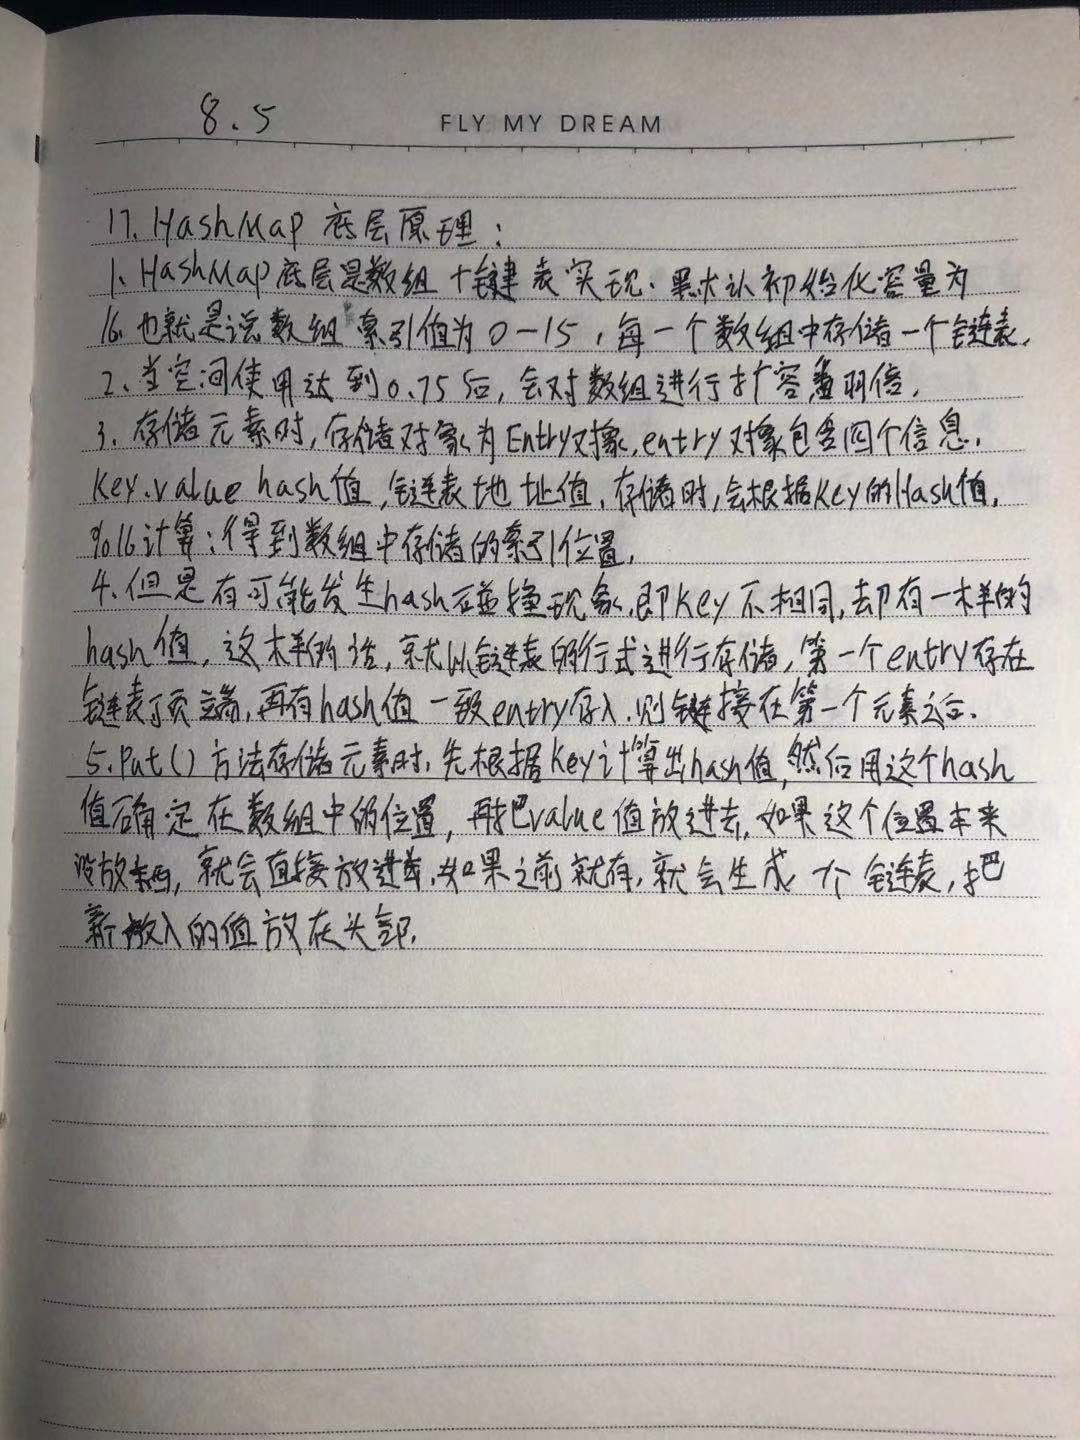 8.5
FLY MY DREAM
17. HashMap 底层原理:
1. HashMap底层是数组+链表实现.默认初始化容量为
16.也就是说数组索引值为0-15,每一个数组中存储一个链表.
2.当空间使用达到0.75后,会对数组进行扩容 翻倍.
3.存储元素时,存储对象为Entry对象,entry对象包含四个信息.
Key.value hash值,链表地址值.存储时,会根据Key的Hash值.
%16计算:得到数组中存储的索引位置.
4.但是有可能发生hash碰撞现象,即Key不相同,却有一样的
hash值,这样的话,就以链表的行式进行存储,第一个entry存在
链表顶端,再有hash值一致entry存入.则链接在第一个元素之后.
5.Put()方法存储元素时,先根据Key计算出hash值,然后用这个hash
值确定在数组中的位置,再把value值放进去,如果这个位置本来
没放东西,就会直接放进去,如果之前就有,就会生成一个链表,把
新放入的值放在头部.